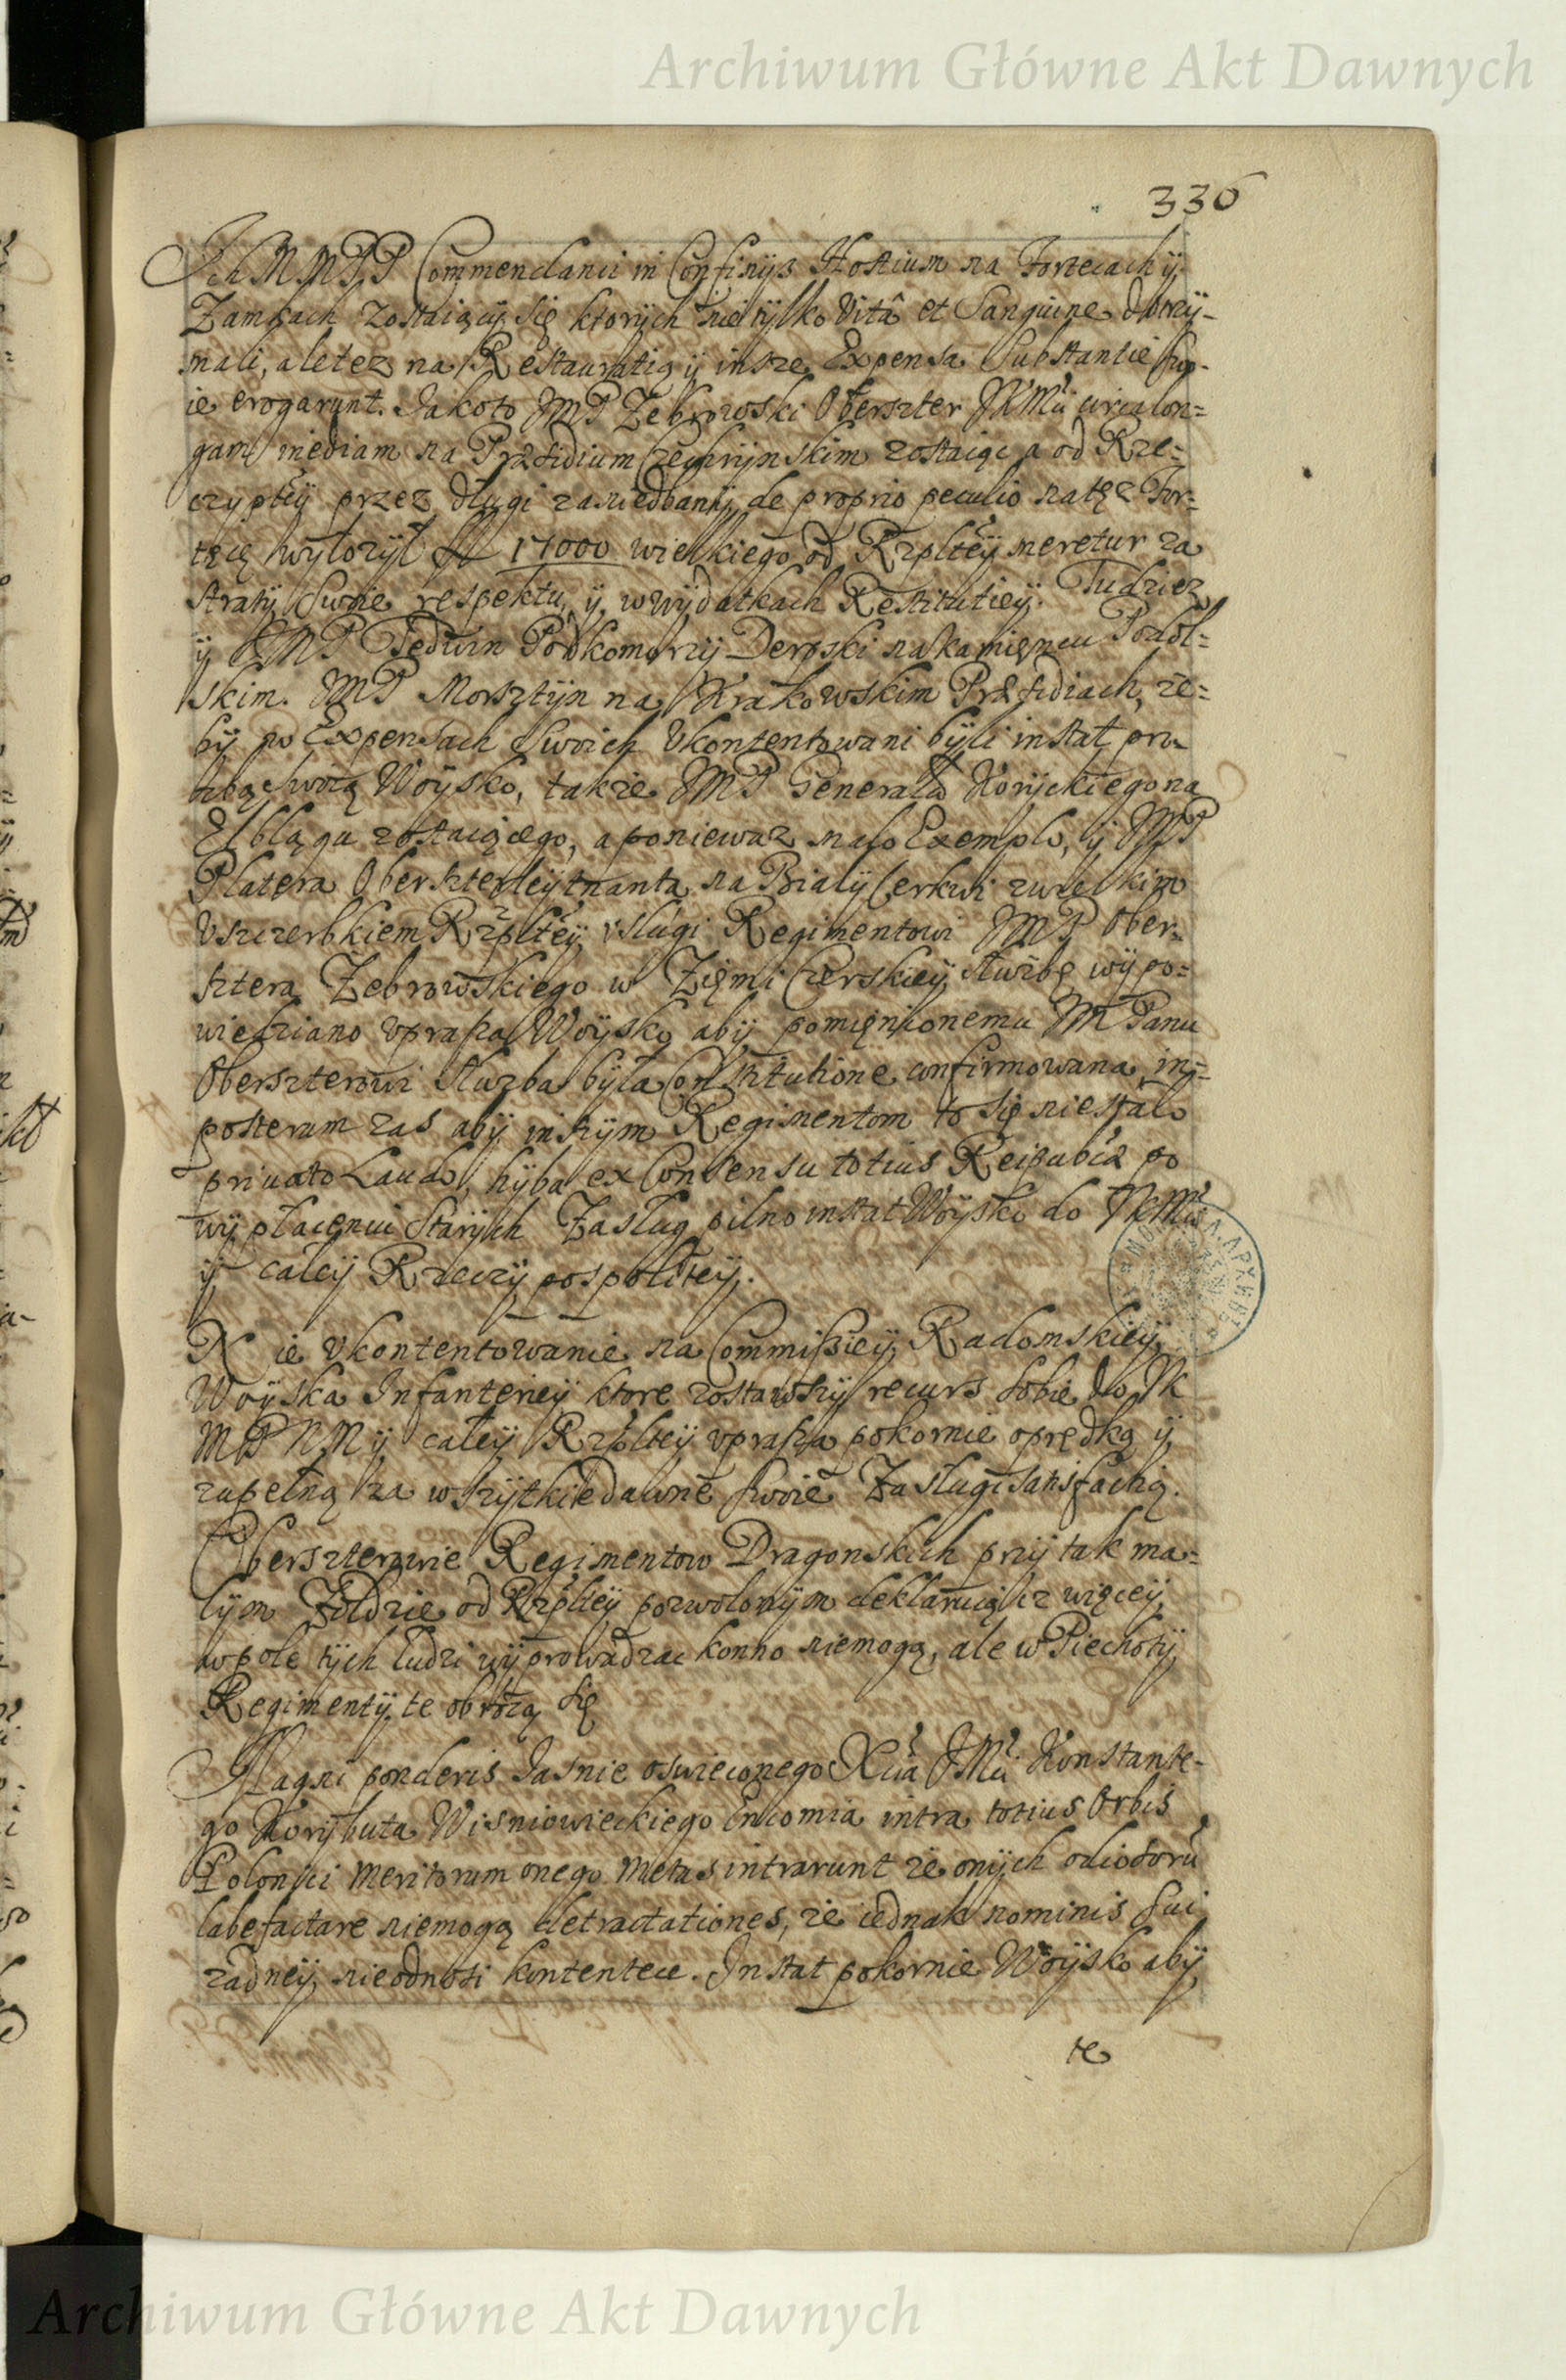 Archiwum Główne Akt Dawnych
336
Ich MMPP Commendanci in Confinijs Hostium na Fortecach ÿ
Zamkach zostaiącÿ się ktorÿch nietÿlko Vitâ et Sanguine dotrzÿ-
mali, aletez na Restauratią ÿ insze Expensa Substantie swo-
ie erogarunt. Jakoto JMP Zebrowski Oberszter JKMci circa lon=
gam mediam na Præsidium Czehrÿnskim zostaiąc a od Rze=
czyptÿ przez długi zaniedbanÿ de proprio peculio natęz For=
tecę wÿłozÿł fl 17000 wielkiego od Rzpltëÿ meretur za
stratÿ swoie respektu, ÿ wwÿdatkach Restitutieÿ. Tudziez
ÿ JMP Tedwin Podkomorzÿ Derpski na kamięncu Podol=
skim. JMP Morsztÿn na Krakowskim Præsidiach, ze=
bÿ po Expensach swoich Vkontentowani bÿli instat pro-
zbą swoią Woÿsko, takze JMP Generała Korÿckiego na
Elblągu zostaiącego, a poniewaz malo Exemplo, ÿ JMP
Platera Oberszterleÿtnanta na Biały Cerkwi zwielkim
Vszczerbkiem Rzpltëÿ vsługi Regimentowi JMP Ober-
sztera Zebrowskiego w Zięmi Czerskieÿ słuzbę wÿpo=
wiedziano vprasza Woÿsko abÿ pomięnionemu M Panu
Oberszterowi słuzba bÿła Constitutione confirmowana, in=
posterum zas abÿ inszÿm Regimentom to się niestało
priuato Laudo, hÿba ex Consensu totius Reipublicæ po
wÿpłacęniu Starÿch Zasług pilno instat Woÿsko do JKMci
ÿ całeÿ Rzeczÿpospoliteÿ.
Nie vkontentowanie na Commissieÿ Radomskieÿ
Woÿska Infanterieÿ ktore zostawszÿ recurs sobie do JK
MPNM ÿ całeÿ Rzpltëÿ vprasza pokornie oprędką ÿ
zupełną za wszÿtkie dawne swoie Zasługi satisfactią.
Oberszterowie Regimentow Dragonskich przÿ tak ma=
łÿm Zołdzie od Rzpltëÿ pozwolonÿm deklaruią isz więceÿ
wpole tÿch ludzi wÿprowadzac konno niemogą, ale w Piechotÿ
Regimentÿ te obrocą się
Magni ponderis Jasnie oswieconego Xcia JMci Konstante-
go Korÿbuta Wisniowieckiego Encomia intra totius Orbis
Polonici meritorum onego metas intrarunt ze onÿch odiosorũ
labefactare niemogą detractationes, ze iednak nominis sui
zadneÿ nieodnosi kontentece. Instat pokornie Woÿsko abÿ
te
Archiwum Główne Akt Dawnych